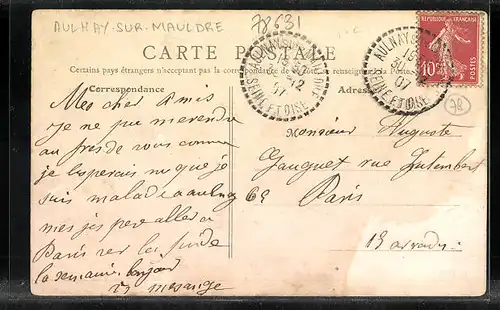 AULNAY-SUR-MAULDRE
78631
CARTE POSTALE
Certains pays étrangers n'acceptant pas la correspondance de ce côté, se renseigner à la Poste
Correspondance
Adresse
RÉPUBLIQUE FRANÇAISE
10c
POSTES
AULNAY
SEINE ET OISE
07
AULNAY
SEINE ET OISE
07
78
Mes cher Amis
je ne pui me rendre
au près de vous comme
je l'esperais vu que je
suis malade a aulnay
mes j'espere aller a
Paris ver la fin de
la semaine bonjour
Monsieur Auguste
Gauguet rue
62
Paris